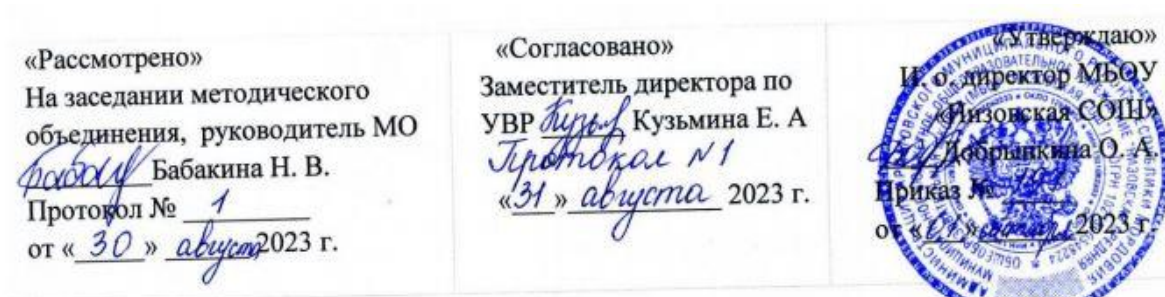 «Рассмотрено»
На заседании методического
объединения, руководитель МО
Бабакина Н. В.
Протокол № 1
от « 30 » августа 2023 г.
«Согласовано»
Заместитель директора по
УВР Кузьмина Е. А
Протокол N1
«31» августа 2023 г.
«Утверждаю»
И. о. директор МБОУ
«Низовская СОШ»
Добрынкина О. А.
Приказ №
от «01» 2023 г.